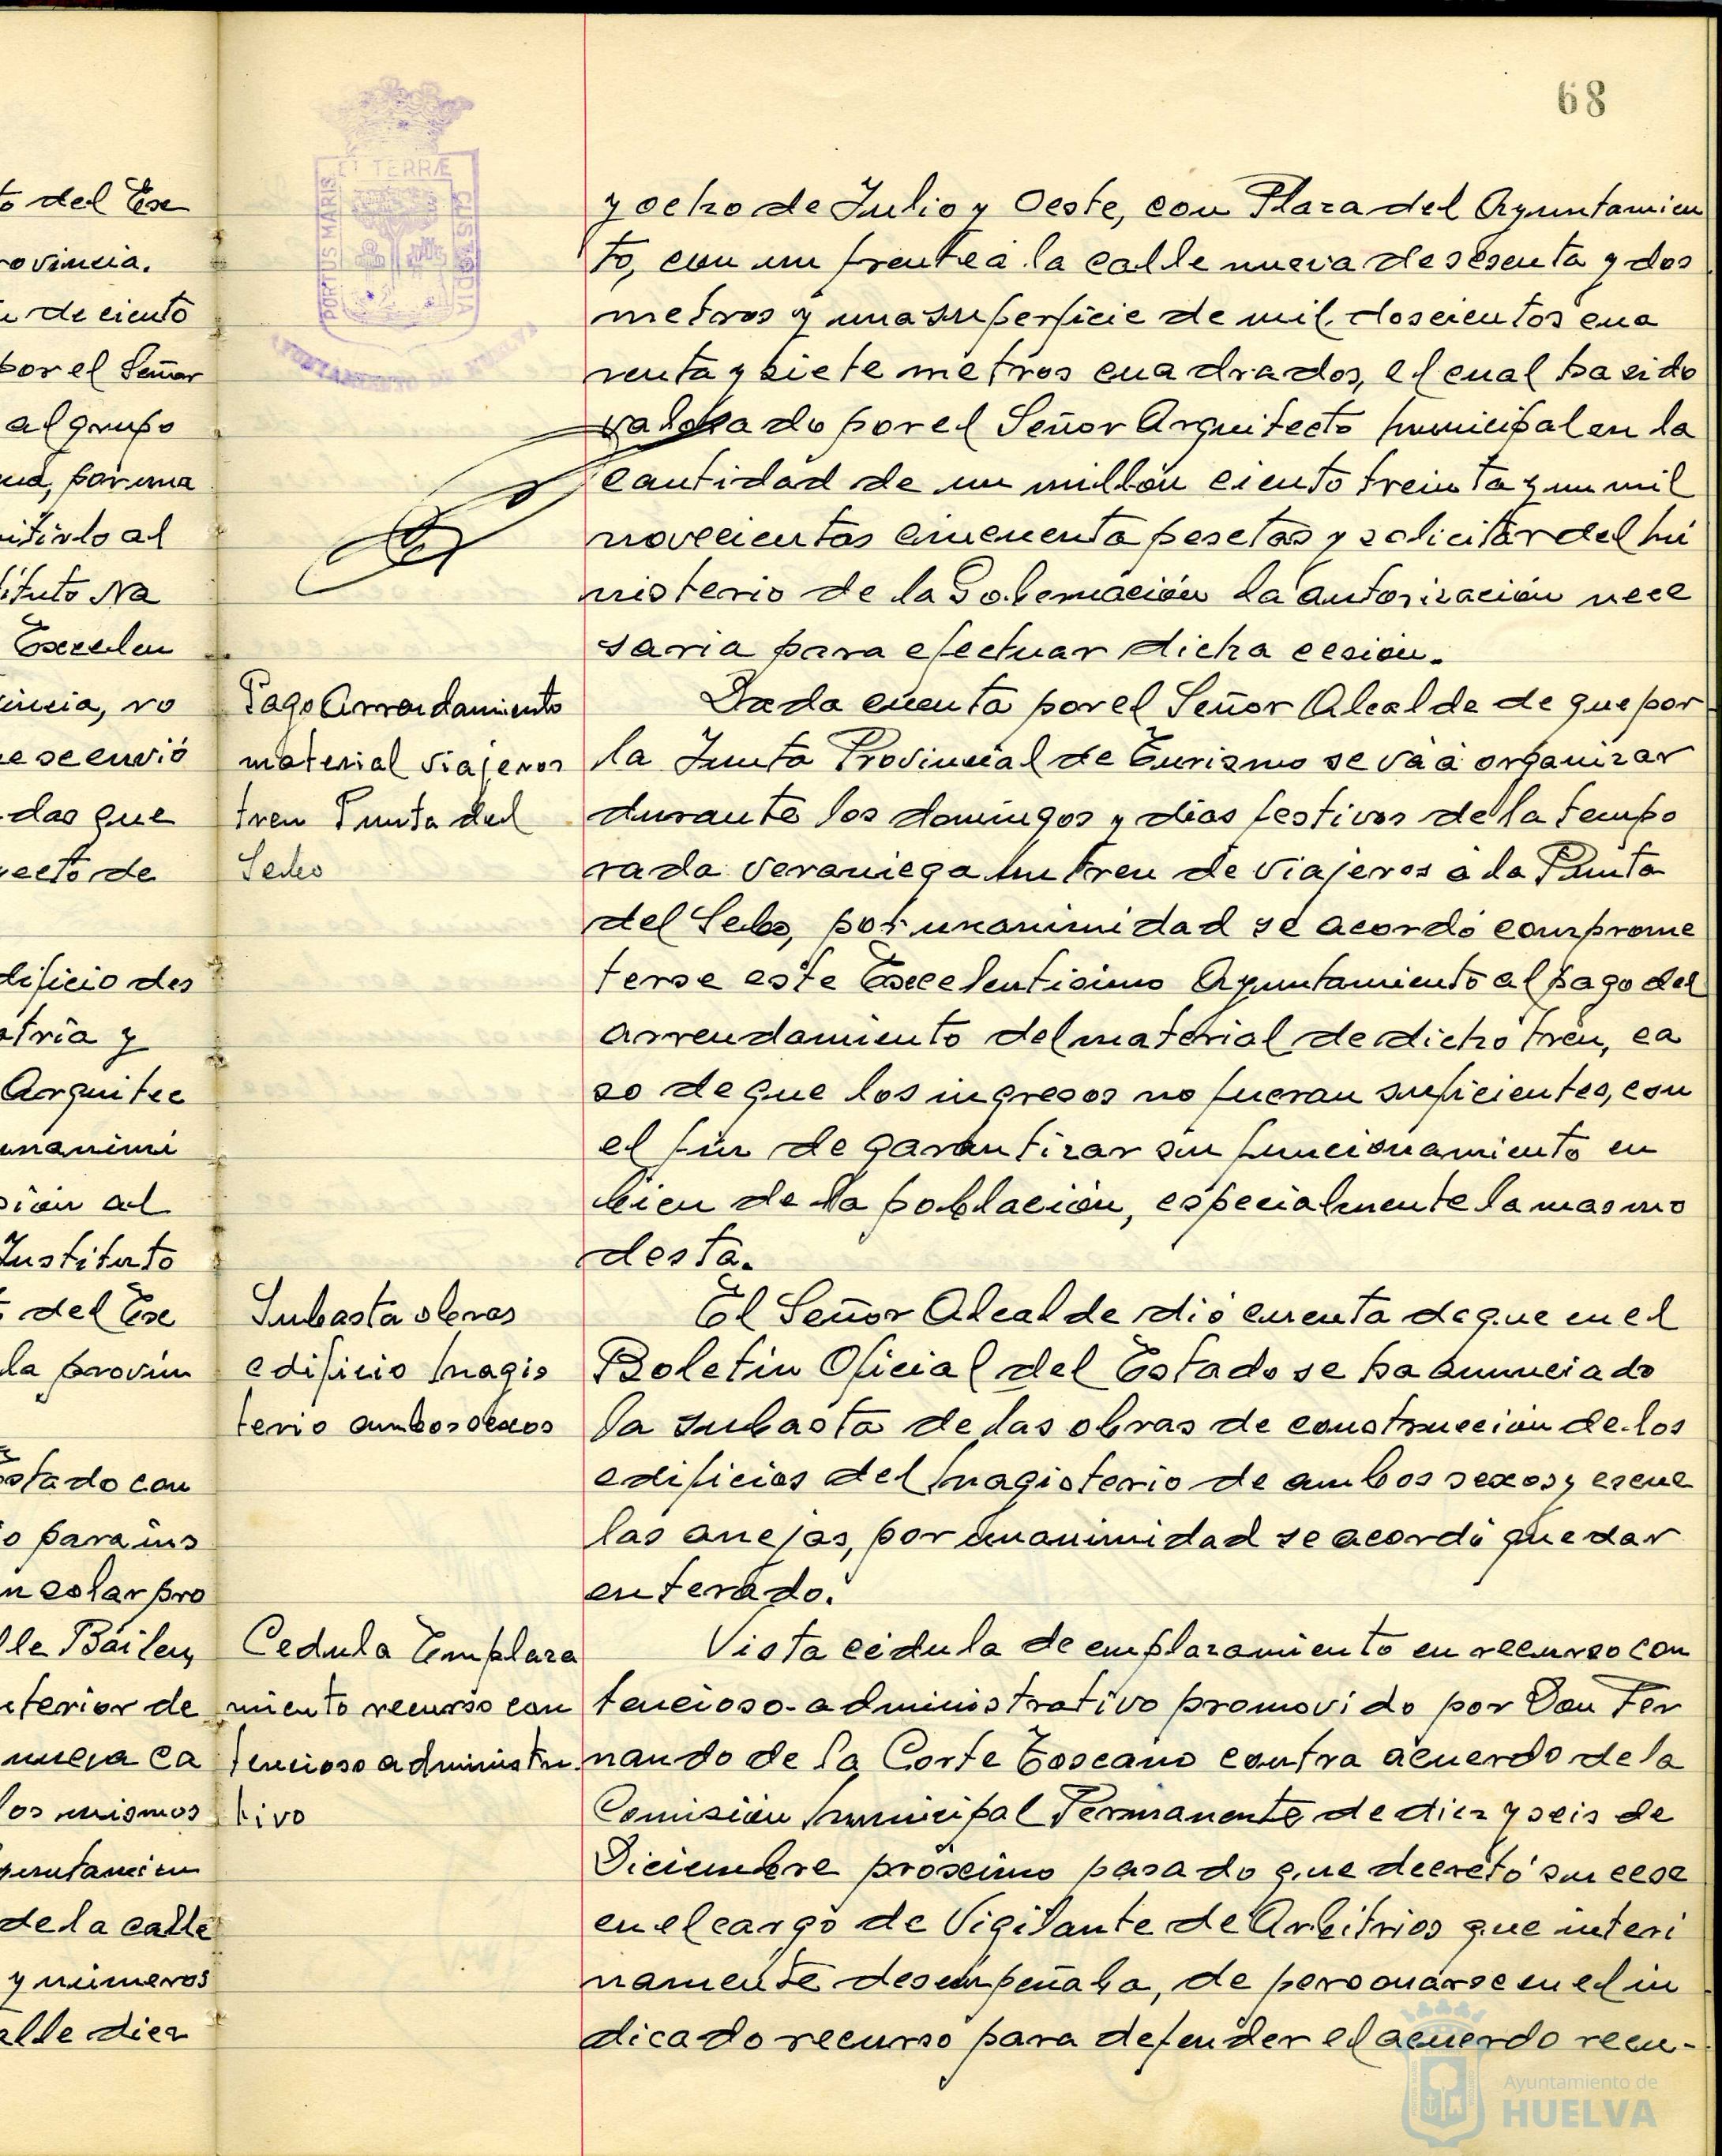 68
ET TERRÆ
PORTUS MARIS
CUSTODIA
AYUNTAMIENTO DE HUELVA
to del Exe
rovincia.
de ciento
por el Señor
al grupo
por una
mitirlo al
tituto Na
Excelen
vincia, ro
se envió
das que
yecto de
dificio des
stria y
Arquitec
unanimi
sión al
Instituto
del Exe
la provin
stado con
o para ins
n solar pro
lle Bailen,
terior de
nueva ca
los mismos
yuntamien
de la calle
y números
alle diez
y ocho de Julio y Oeste, con Plaza del Ayuntamien
to, con un frente a la calle nueva de sesenta y dos
metros y una superficie de mil doscientos cua
renta y siete metros cuadrados, el cual ha sido
valorado por el Señor Arquitecto municipal en la
cantidad de un millón ciento treinta y un mil
novecientas cincuenta pesetas y solicitar del Mi
nisterio de la Gobernación la autorización nece
saria para efectuar dicha cesión.
Pago Arrendamiento
material viajeros
tren Punta del
Sebo
Dada cuenta por el Señor Alcalde de que por
la Junta Provincial de Turismo se va a organizar
durante los domingos y días festivos de la tempo
rada veraniega un tren de viajeros a la Punta
del Sebo, por unanimidad se acordó comprome
terse este Excelentisimo Ayuntamiento al pago del
arrendamiento del material de dicho tren, ca
so de que los ingresos no fueran suficientes, con
el fin de garantizar su funcionamiento en
bien de la población, especialmente la mas mo
desta.
Subasta obras
edificio Magis
terio ambos sexos
El Señor Alcalde dió cuenta de que en el
Boletin Oficial del Estado se ha anunciado
la subasta de las obras de construcción de los
edificios del Magisterio de ambos sexos y escue
las anejas, por unanimidad se acordó quedar
enterado.
Cedula Emplaza
miento recurso con
tencioso administra
tivo
Vista cédula de emplazamiento en recurso con
tencioso-administrativo promovido por Don Fer
nando de la Corte Toscano contra acuerdo de la
Comisión Municipal Permanente de diez y seis de
Diciembre próximo pasado que decretó su cese
en el cargo de Vigilante de Arbitrios que interi
namente desempeñaba, de personarse en el in
dicado recurso para defender el acuerdo recu-
Ayuntamiento de
HUELVA